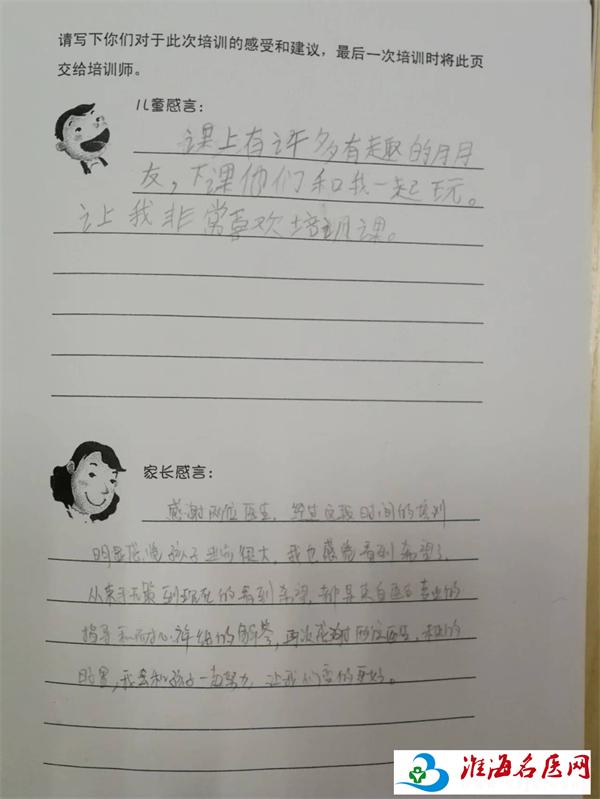 请写下你们对于此次培训的感受和建议，最后一次培训时将此页
交给培训师。
儿童感言：
课上有许多有趣的朋
友，下课他们和我一起玩。
让我非常喜欢培训课。
家长感言：
感谢两位医生，经过这段时间的培训
明显感觉孩子进步很大，我也感觉看到希望了
从束手无策到现在的看到希望，都是来自医生专业的
指导和耐心详细的解答，再次感谢两位医生，
我会和孩子一起努力，让我们变的更好。
淮海名医网